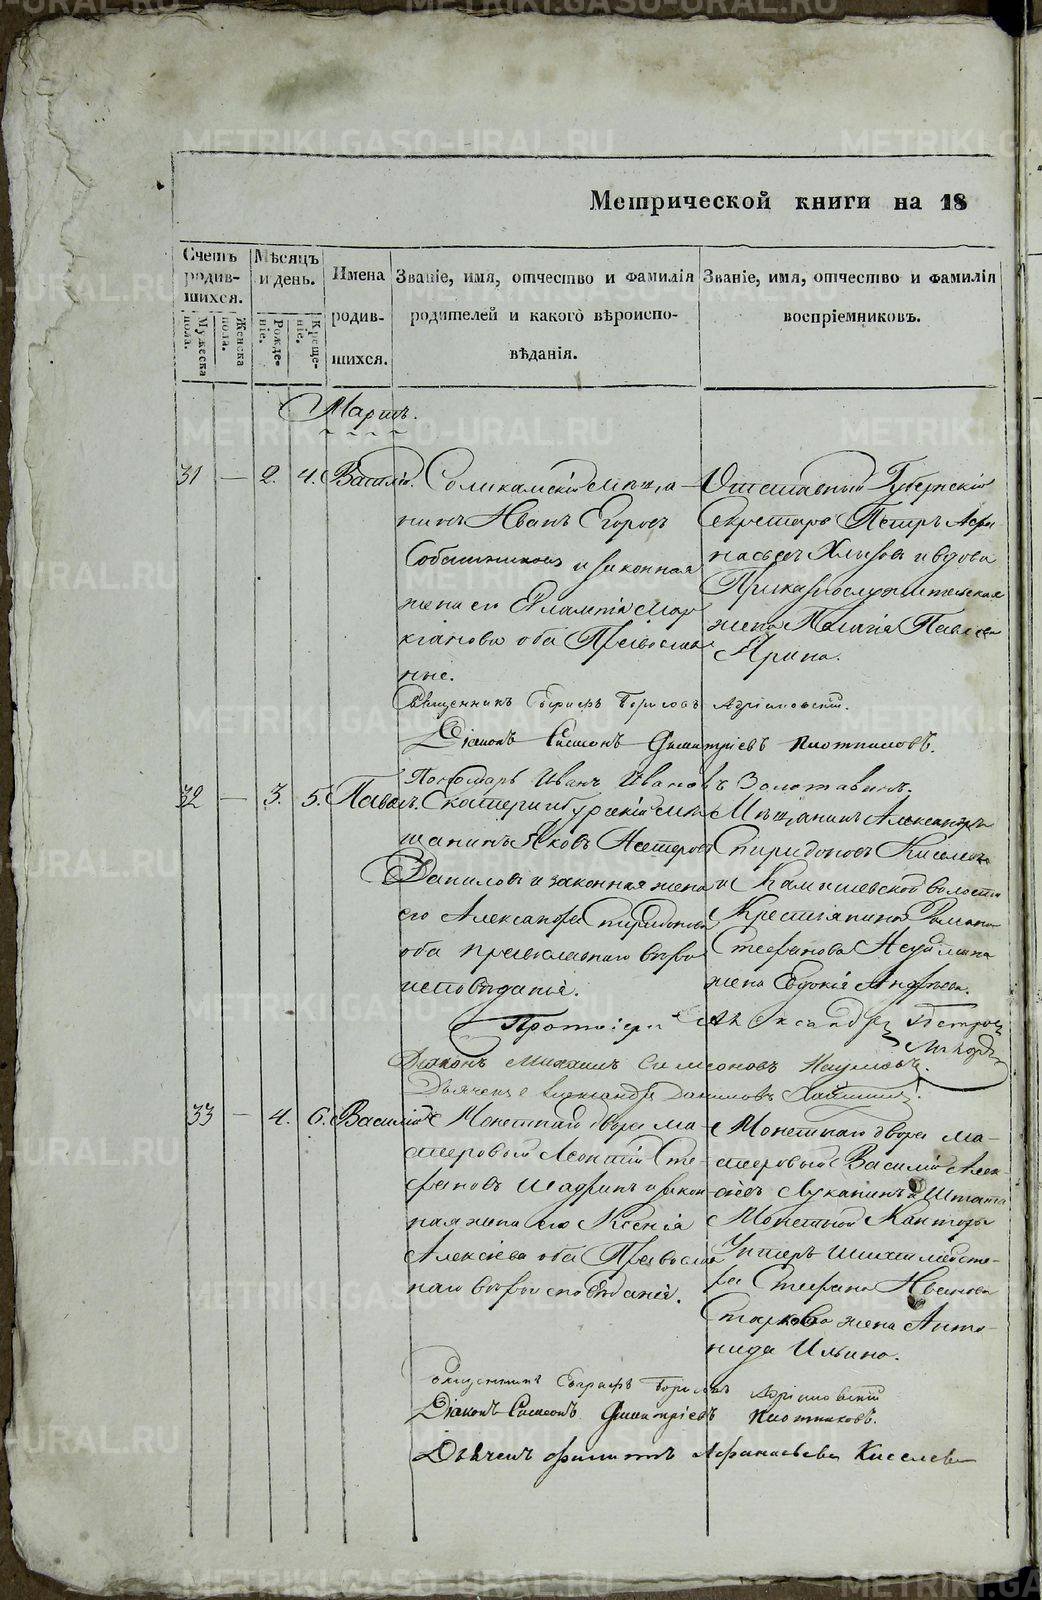 METRIKI.GASO-URAL.RU
Метрической книги на 18
Счетъ родив-шихся.
Мужеска пола.
Женска пола.
Мѣсяцъ и день.
Рожде-ніе.
Креще-ніе.
Имена
родив-
шихся.
Званіе, имя, отчество и фамилія
родителей и какого вѣроиспо-
вѣданія.
Званіе, имя, отчество и фамилія
воспріемниковъ.
Мартъ.
31 — 2. 4. Василій.
Соликамскій мѣща
нинъ Иванъ Егоровъ
и законная
жена его Евлампія Мар
кіанова оба Православ
ные.
Отставный Губернскій
Секретарь Петръ Афа
насьевъ Хлызовъ и вдова
Приказнослужительская
жена Пелагія Павлова
Ярина.
Священникъ Евграфъ Борисовъ Адріановскій.
Діаконъ Симеонъ Димитріевъ Плотниковъ.
Пономарь Иванъ Ивановъ Золотавинъ.
32 — 3. 5. Павелъ.
Екатеринбургскій мѣ
щанинъ Яковъ Нестеровъ
Даниловъ и законная жена
его Александра Спиридонова
оба православнаго вѣро
исповѣданія.
Мѣщанинъ Александръ
Спиридоновъ Киселевъ
и Камышевской волости
Крестьянина Романа
Стефанова
жена Евдокія Андреева.
Протоіерей Александръ Петровъ
Діаконъ Михаилъ Симеоновъ Наумовъ.
Дьячекъ Александръ Даниловъ
33 — 4. 6. Василій
Монетнаго двора ма-
стеровой Леонтій Сте-
фановъ Шадринъ и закон
ная жена его Ксенія
Алексіева оба Православ
наго вѣроисповѣданія.
Монетнаго двора ма-
стеровый Василій Алек-
сѣевъ Луканинъ и Штата
Монетной Канторы
Унтеръ Шихтмейсте-
ра Стефана Иванова
Старкова жена Анто-
нида Ильина.
Священникъ Евграфъ Борисовъ Адріановскій
Діаконъ Симеонъ Димитріевъ Плотниковъ.
Дьячекъ Филиппъ Афанасьевъ Киселевъ